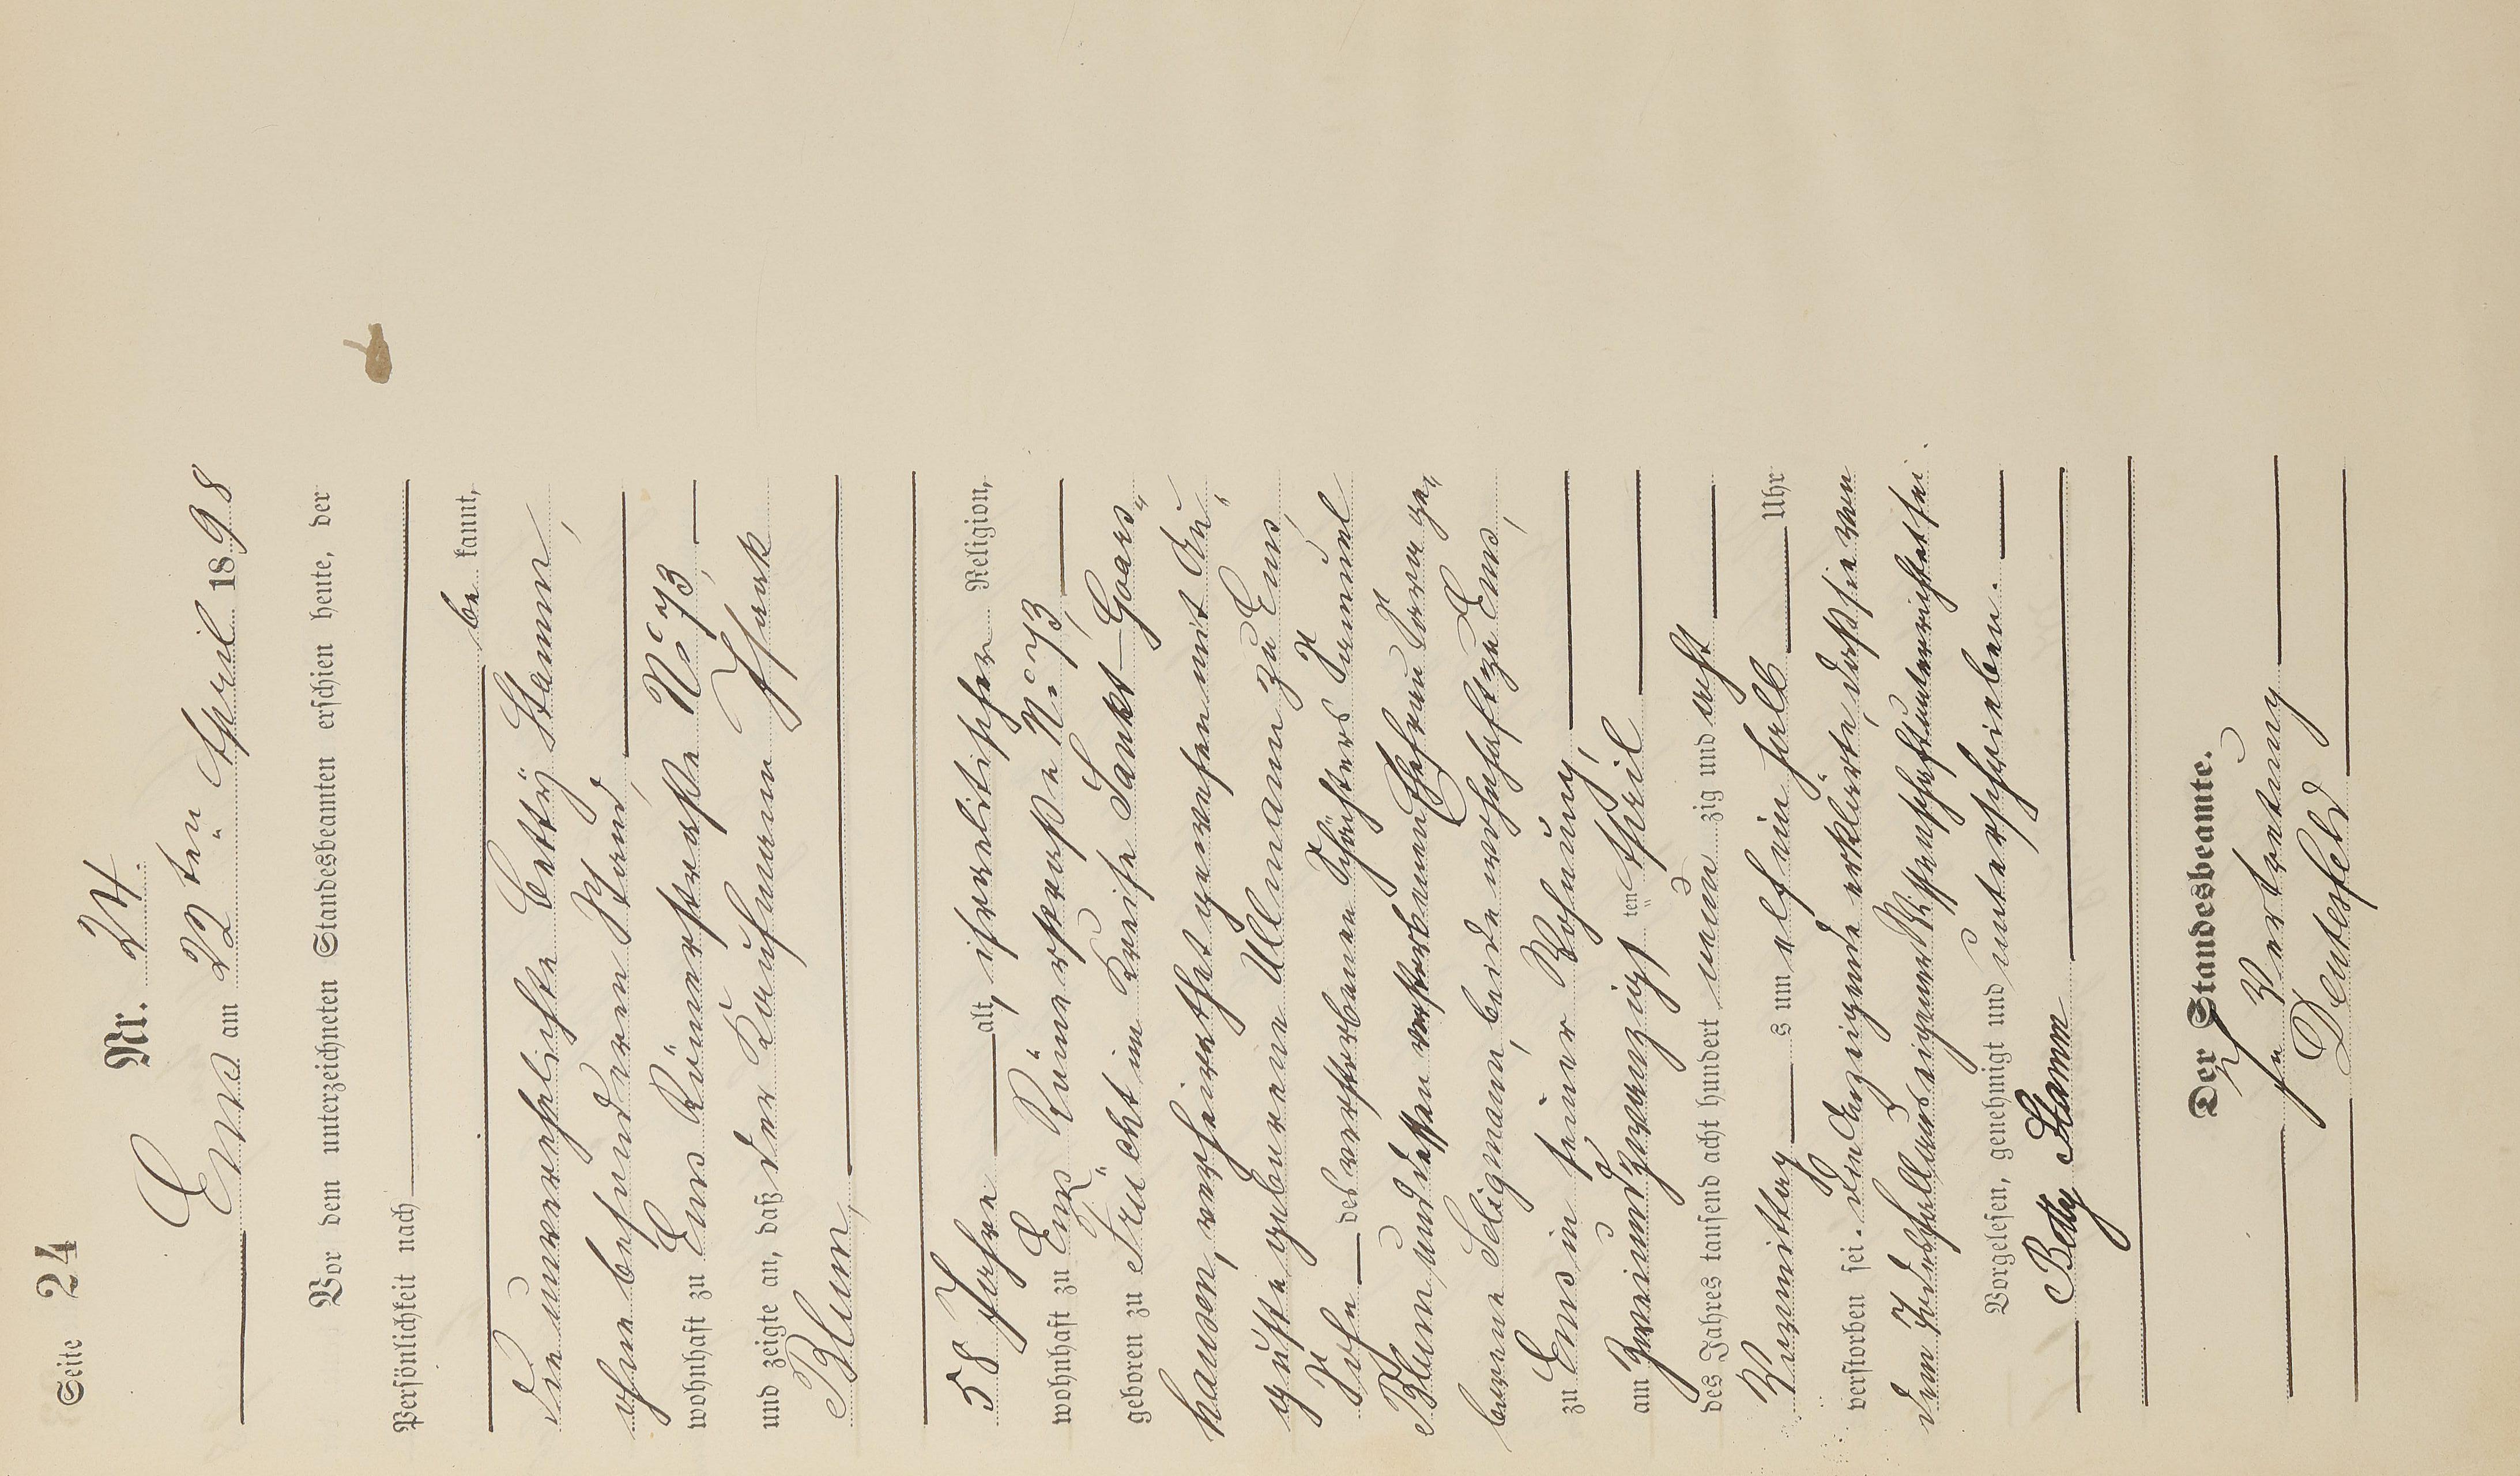 Seite 24
Nr. 24.
Ems am 22 ten April 1898
Vor dem unterzeichneten Standesbeamten erschien heute, der
Persönlichkeit nach
be kannt,
die unverehelichte Betty Stamm,
ohne besonderen Stand,
wohnhaft zu Ems Römerstraße No 73,
und zeigte an, daß der Kaufmann Isaak
Blum,
58 Jahre alt, israelitischer Religion,
wohnhaft zu Ems Römerstraße No 73,
geboren zu Frücht im Kreise Sankt-Goars-
hausen, verheirathet gewesen mit Au-
guste geborene Ullmann zu Ems,
Sohn des verstorbenen Samuel
Blum und dessen verstorbenen Ehefrau Sara ge-
borene Seligmann, beide wohnhaft zu Ems,
zu Ems in seiner Wohnung,
am zweiundzwanzigsten April
des Jahres tausend acht hundert neunzig und acht
Vormittags um elf ein halb Uhr
verstorben sei. Die Anzeigende erklärte, daß sie von
dem Todesfall aus eigener Wissenschaft unterrichtet sei.
Vorgelesen, genehmigt und unterschrieben.
Betty Stamm
Der Standesbeamte.
In Vertretung